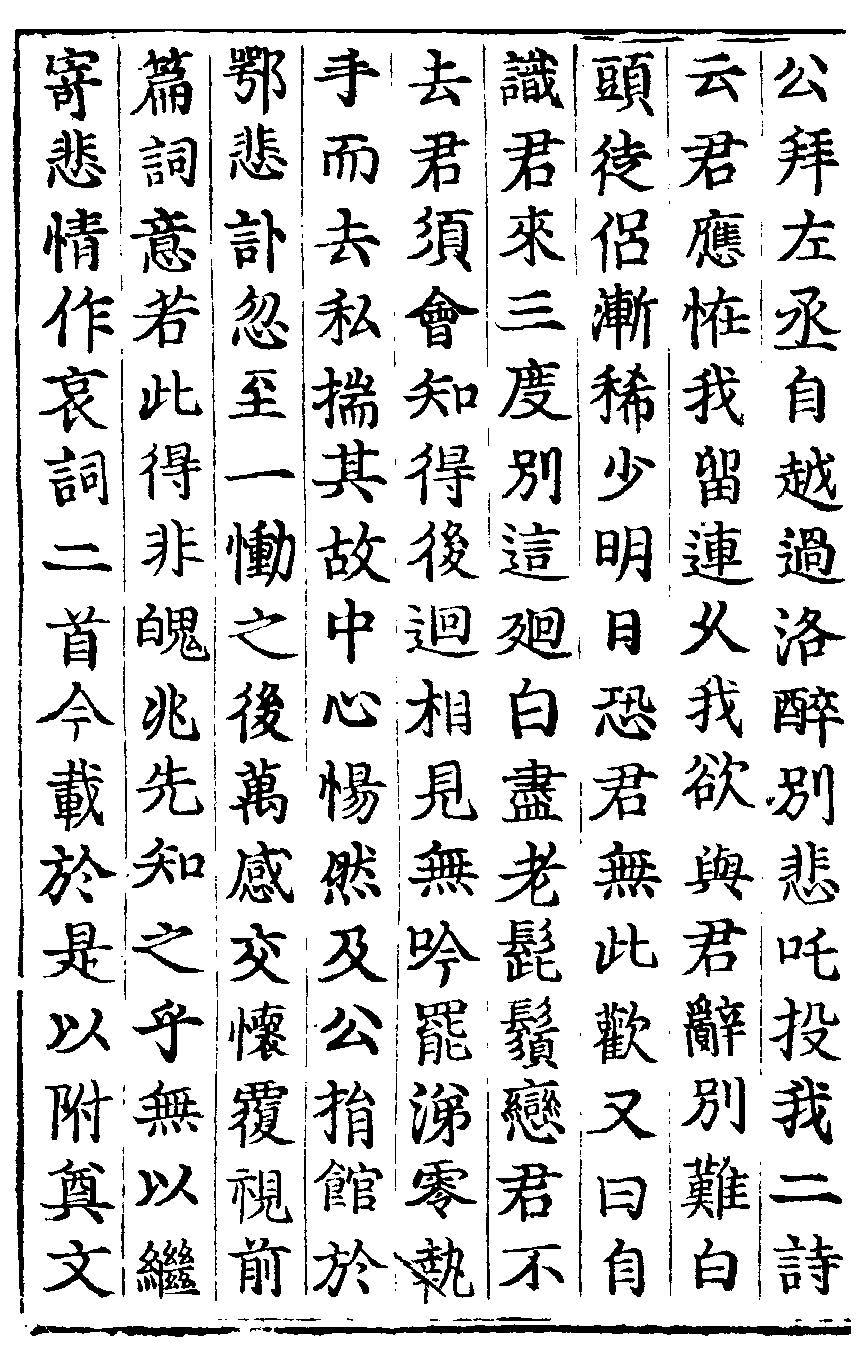 公拜左丞自越過洛醉別悲吒投我二詩
云君應恠我留連久我欲與君辭別難白
頭徒侶漸稀少明日恐君無此歡又曰自
識君來三度別這廻白盡老髭鬚戀君不
去君須會知得後迴相見無吟罷涕零執
手而去私揣其故中心惕然及公捐館於
鄂悲訃忽至一慟之後萬感交懷覆視前
篇詞意若此得非魄兆先知之乎無以繼
寄悲情作哀詞二首今載於是以附奠文